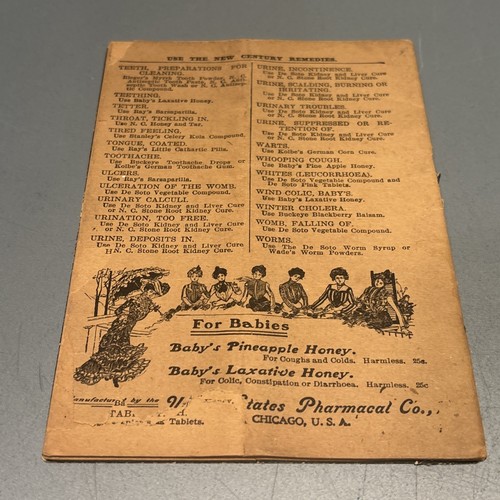 USE THE NEW CENTURY REMEDIES.
TEETH, PREPARATIONS FOR
CLEANING.
Ringer's Myrrh Tooth Powder, N. C.
Antiseptic Tooth Paste, N. C.
septic Tooth Wash or N. C.
tic Compound.
TEETHING.
Use Baby's Laxative Honey.
TETTER.
Use Ray's Sarsaparilla.
THROAT, TICKLING IN.
Use N. C. Honey and Tar.
TIRED FEELING.
Use Stanley's Celery Kola Compound.
TONGUE, COATED.
Use Ray's Little Cathartic Pills.
TOOTHACHE.
Use Buckeye Toothache Drops or
Kolbe's German Toothache Gum.
ULCERS.
Use Ray's Sarsaparilla.
ULCERATION OF THE WOMB.
Use De Soto Vegetable Compound.
URINARY CALCULI.
Use De Soto Kidney and Liver Cure
or N. C. Stone Root Kidney Cure.
URINATION, TOO FREE.
Use De Soto Kidney and Liver Cure
or N. C. Stone Root Kidney Cure.
URINE, DEPOSITS IN.
Use De Soto Kidney and Liver Cure
N. C. Stone Root Kidney Cure.
URINE, INCONTINENCE.
Use De Soto Kidney and Liver Cure
or N. C. Stone Root Kidney Cure.
URINE, SCALDING, BURNING OR
IRRITATING.
Use De Soto Kidney and Liver Cure
or N. C. Stone Root Kidney Cure.
URINARY TROUBLES.
Use De Soto Kidney and Liver Cure
or N. C. Stone Root Kidney Cure.
URINE, SUPPRESSED OR RE-
TENTION OF.
Use De Soto Kidney and Liver Cure
or N. C. Stone Root Kidney Cure.
WARTS.
Use Kolbe's German Corn Cure.
WHOOPING COUGH.
Use Baby's Pine Apple Honey.
WHITES (LEUCORRHOEA).
Use De Soto Vegetable Compound and
De Soto Pink Tablets.
WIND COLIC, BABY'S.
Use Baby's Laxative Honey.
WINTER CHOLERA.
Use Buckeye Blackberry Balsam.
WOMB, FALLING OF.
Use De Soto Vegetable Compound.
WORMS.
Use The De Soto Worm Syrup or
Wade's Worm Powders.
For Babies
Baby's Pineapple Honey.
For Coughs and Colds. Harmless. 25c.
Baby's Laxative Honey.
For Colic, Constipation or Diarrhoea. Harmless. 25c
Manufactured by the States Pharmacal Co.,
TAB
Tablets. CHICAGO, U. S. A.